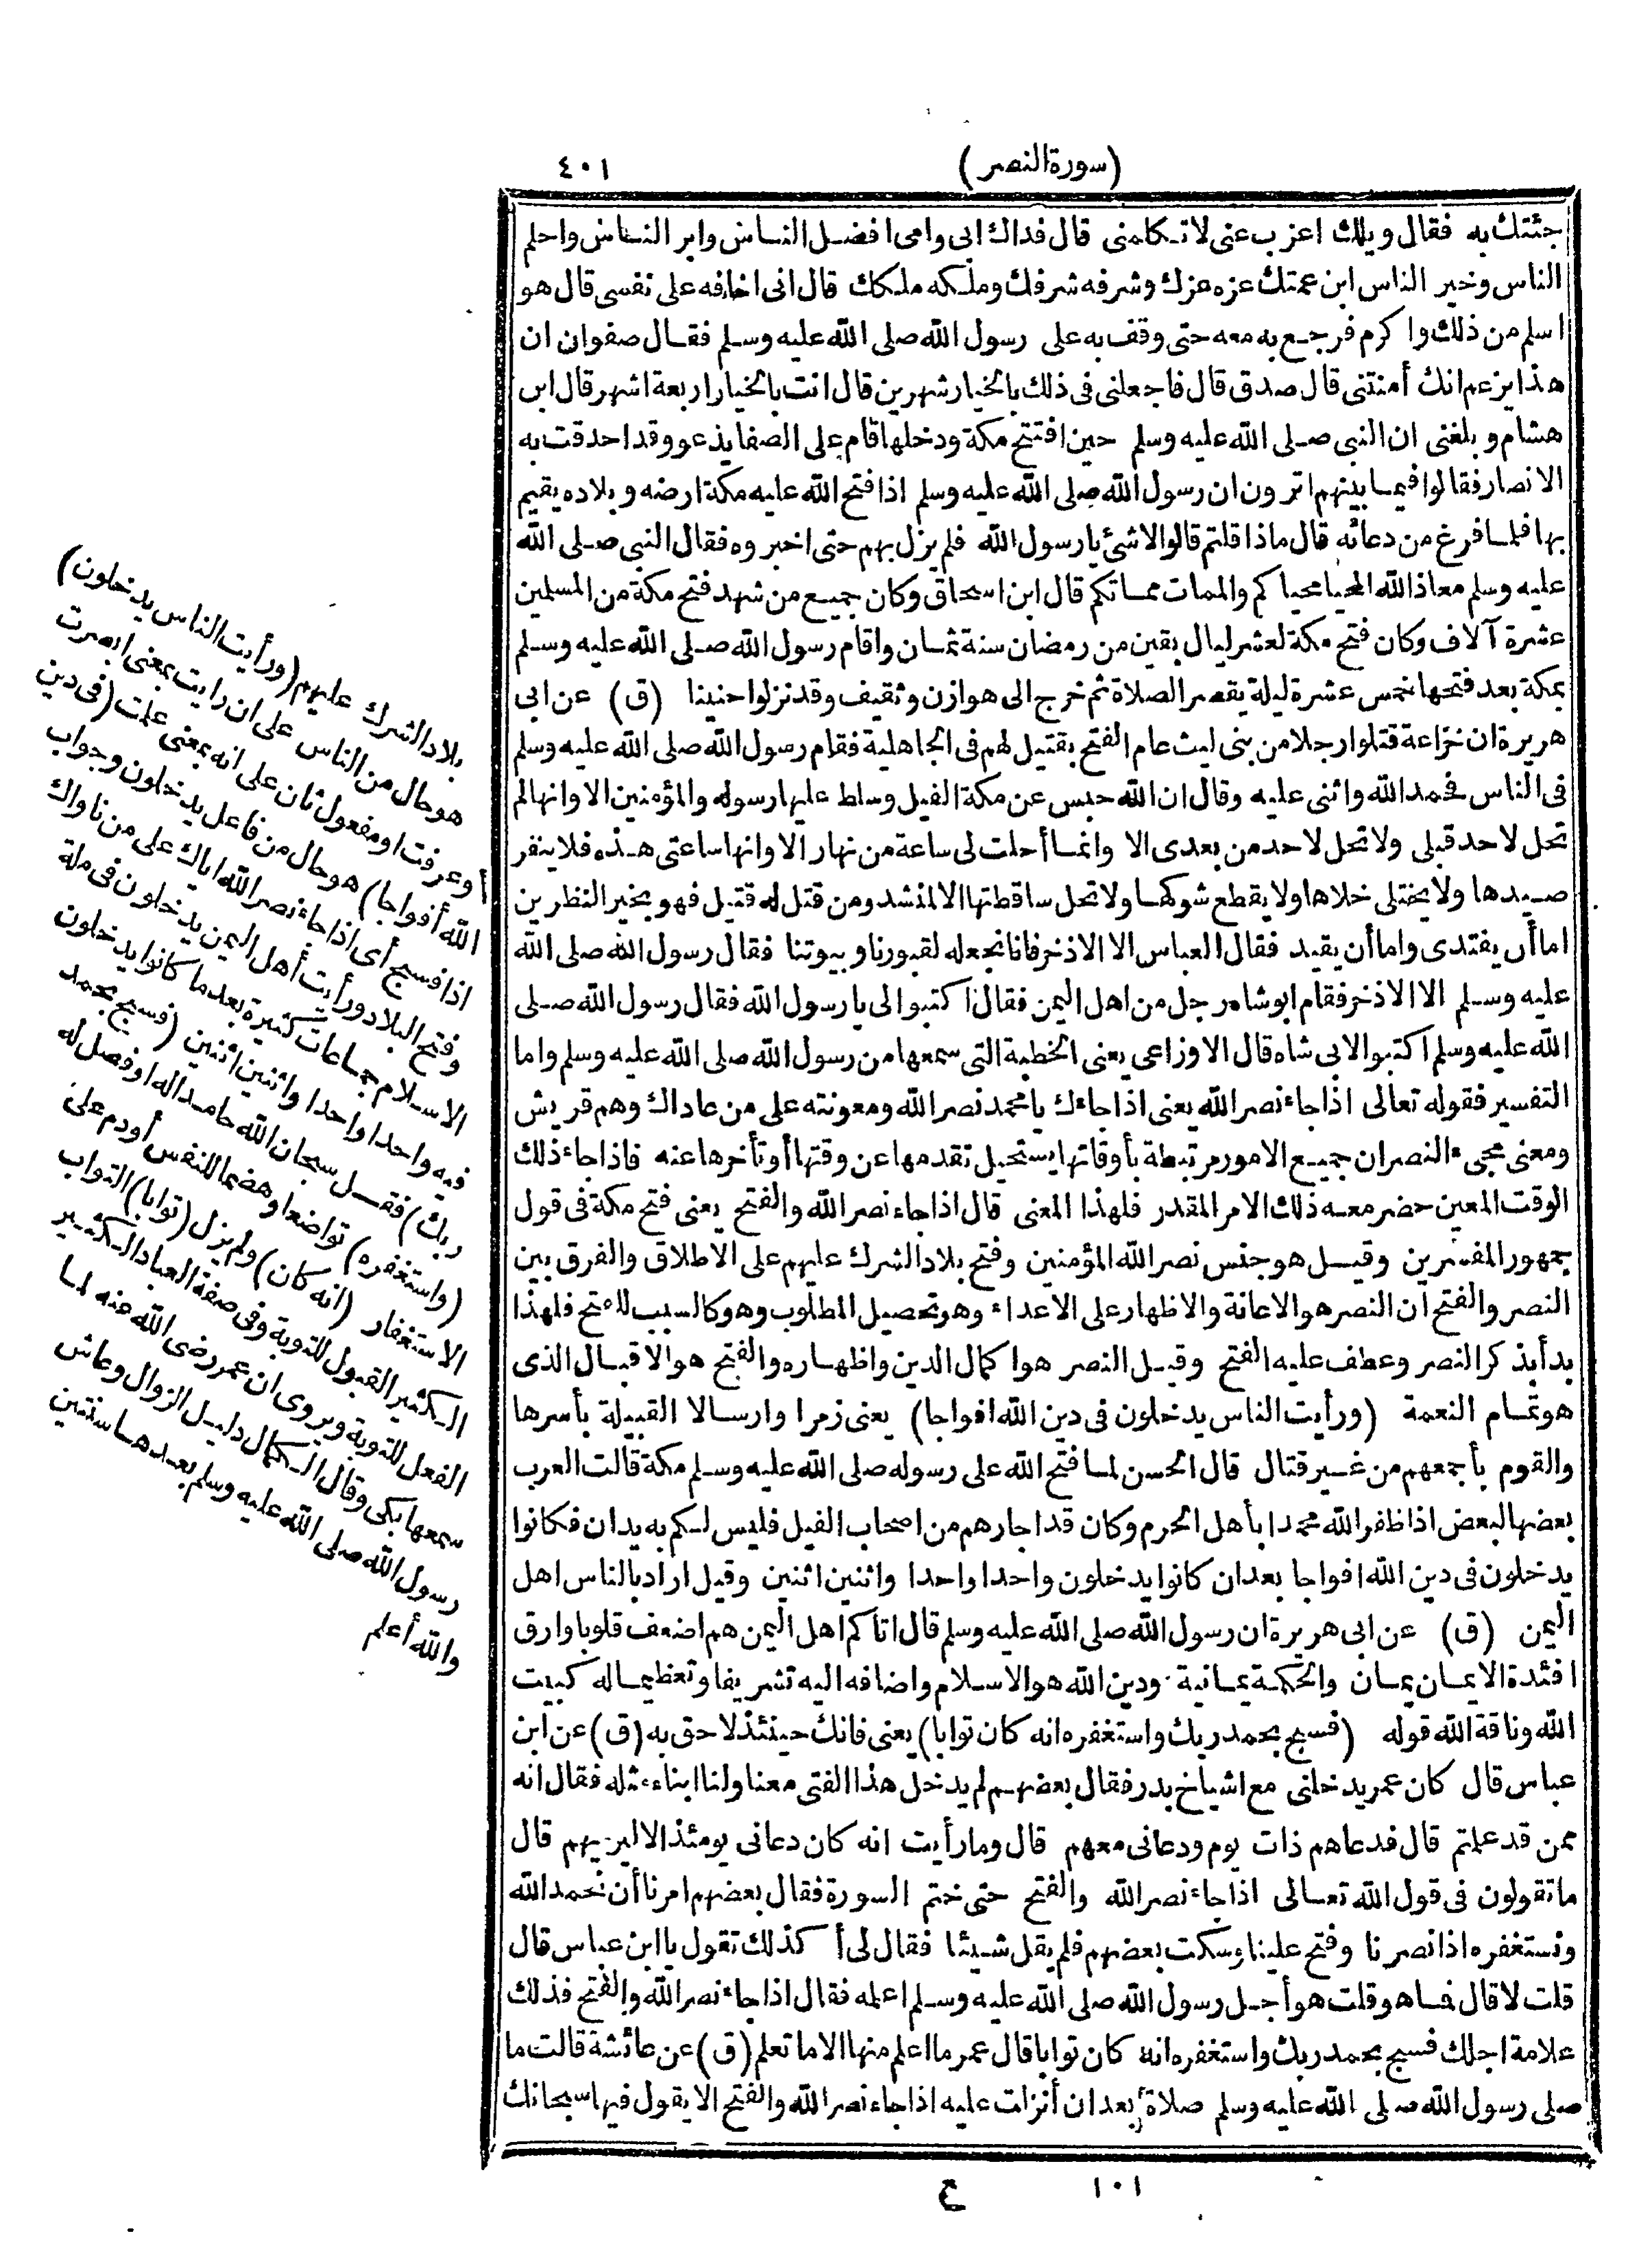 (سورة النصر)
٤٠١
جئتك به فقال ويلك اعزب عنى لا تكلمنى قال فداك ابى وامى افضل الناس وابر الناس واحلم
الناس وخير الناس ابن عمتك عزه عزك وشرفه شرفك وملكه ملكك قال انى اخافه على نفسى قال هو
اسلم من ذلك واكرم فرجع به معه حتى وقف به على رسول الله صلى الله عليه وسلم فقال صفوان ان
هذا يزعم انك أمنتنى قال صدق قال فاجعلنى فى ذلك بالخيار شهرين قال انت بالخيار اربعة اشهر قال ابن
هشام وبلغنى ان النبى صلى الله عليه وسلم حين افتتح مكة ودخلها قام على الصفا يدعو وقد احدقت به
الانصار فقالوا فيما بينهم اترون ان رسول الله صلى الله عليه وسلم اذا فتح الله عليه مكة ارضه وبلاده يقيم
بها فلما فرغ من دعائه قال ماذا قلتم قالوا لا شئ يا رسول الله فلم يزل بهم حتى اخبروه فقال النبى صلى الله
عليه وسلم معاذ الله المحيا محياكم والممات مماتكم قال ابن اسحاق وكان جميع من شهد فتح مكة من المسلمين
عشرة آلاف وكان فتح مكة لعشر ليال بقين من رمضان سنة ثمان واقام رسول الله صلى الله عليه وسلم
بمكة بعد فتحها خمس عشرة ليلة يقصر الصلاة ثم خرج الى هوازن وثقيف وقد نزلوا حنينا (ق) عن ابى
هريرة ان خزاعة قتلوا رجلا من بنى ليث عام الفتح بقتيل لهم فى الجاهلية فقام رسول الله صلى الله عليه وسلم
فى الناس فحمد الله واثنى عليه وقال ان الله حبس عن مكة الفيل وسلط عليها رسوله والمؤمنين الا وانها لم
تحل لاحد قبلى ولا تحل لاحد من بعدى الا وانما أحلت لى ساعة من نهار الا وانها ساعتى هذه فلا ينفر
صيدها ولا يختلى خلاها ولا يقطع شوكها ولا تحل ساقطتها الا لمنشد ومن قتل له قتيل فهو بخير النظرين
اما أن يفتدى واما أن يقيد فقال العباس الا الاذخر فانا نجعله لقبورنا وبيوتنا فقال رسول الله صلى الله
عليه وسلم الا الاذخر فقام ابو شاه رجل من اهل اليمن فقال اكتبوا لى يا رسول الله فقال رسول الله صلى
الله عليه وسلم اكتبوا لابى شاه قال الاوزاعى يعنى الخطبة التى سمعها من رسول الله صلى الله عليه وسلم واما
التفسير فقوله تعالى اذا جاء نصر الله يعنى اذا جاءك يا محمد نصر الله ومعونته على من عاداك وهم قريش
ومعنى مجىء النصر ان جميع الامور مرتبطة بأوقاتها يستحيل تقدمها عن وقتها أو تأخرها عنه فاذا جاء ذلك
الوقت المعين حضر معه ذلك الامر المقدر فلهذا المعنى قال اذا جاء نصر الله والفتح يعنى فتح مكة فى قول
جمهور المفسرين وقيل هو جنس نصر الله المؤمنين وفتح بلاد الشرك عليهم على الاطلاق والفرق بين
النصر والفتح ان النصر هو الاعانة والاظهار على الاعداء وهو تحصيل المطلوب وهو كالسبب للفتح فلهذا
بدأ بذكر النصر وعطف عليه الفتح وقيل النصر هو اكمال الدين واظهاره والفتح هو الاقبال الذى
هو تمام النعمة (ورأيت الناس يدخلون فى دين الله افواجا) يعنى زمرا وارسالا القبيلة بأسرها
والقوم بأجمعهم من غير قتال قال الحسن لما فتح الله على رسوله صلى الله عليه وسلم مكة قالت العرب
بعضها لبعض اذا ظفر الله محمدا بأهل الحرم وكان قد اجارهم من اصحاب الفيل فليس لكم به يدان فكانوا
يدخلون فى دين الله افواجا بعد ان كانوا يدخلون واحدا واحدا واثنين اثنين وقيل اراد بالناس اهل
اليمن (ق) عن ابى هريرة ان رسول الله صلى الله عليه وسلم قال اتاكم اهل اليمن هم اضعف قلوبا وارق
افئدة الايمان يمان والحكمة يمانية ودين الله هو الاسلام واضافه اليه تشريفا وتعظيما له كبيت
الله وناقة الله قوله (فسبح بحمد ربك واستغفره انه كان توابا) يعنى فانك حينئذ لاحق به (ق) عن ابن
عباس قال كان عمر يدخلنى مع اشياخ بدر فقال بعضهم لم يدخل هذا الفتى معنا ولنا ابناء مثله فقال انه
ممن قد علمتم قال فدعاهم ذات يوم ودعانى معهم قال وما رأيت انه كان دعانى يومئذ الا ليريهم قال
ما تقولون فى قول الله تعالى اذا جاء نصر الله والفتح حتى ختم السورة فقال بعضهم امرنا أن نحمد الله
ونستغفره اذا نصرنا وفتح علينا وسكت بعضهم فلم يقل شيئا فقال لى أكذلك تقول يا ابن عباس قال
قلت لا قال فما هو قلت هو أجل رسول الله صلى الله عليه وسلم اعلمه فقال اذا جاء نصر الله والفتح فذلك
علامة اجلك فسبح بحمد ربك واستغفره انه كان توابا قال عمر ما اعلم منها الا ما تعلم (ق) عن عائشة قالت ما
صلى رسول الله صلى الله عليه وسلم صلاة بعد ان أنزلت عليه اذا جاء نصر الله والفتح الا يقول فيها سبحانك
بلاد الشرك عليهم (ورأيت الناس يدخلون)
هو حال من الناس على ان رأيت بمعنى ابصرت
أو عرفت او مفعول ثان على انه بمعنى علمت (فى دين
الله أفواجا) هو حال من فاعل يدخلون وجواب
اذا فسبح أى اذا جاء نصر الله اياك على من ناواك
وفتح البلاد ورأيت أهل اليمن يدخلون فى ملة
الاسلام جماعات كثيرة بعد ما كانوا يدخلون
فيه واحدا واحدا واثنين اثنين (فسبح بحمد
ربك) فقل سبحان الله حامدا له او فصل له
(واستغفره) تواضعا وهضما للنفس أو دم على
الاستغفار (انه كان) ولم يزل (توابا) التواب
الكثير القبول للتوبة وفى صفة العباد الكثير
الفعل للتوبة ويروى ان عمر رضى الله عنه لما
سمعها بكى وقال الكمال دليل الزوال وعاش
رسول الله صلى الله عليه وسلم بعدها سنتين
والله أعلم
١٠١
ع